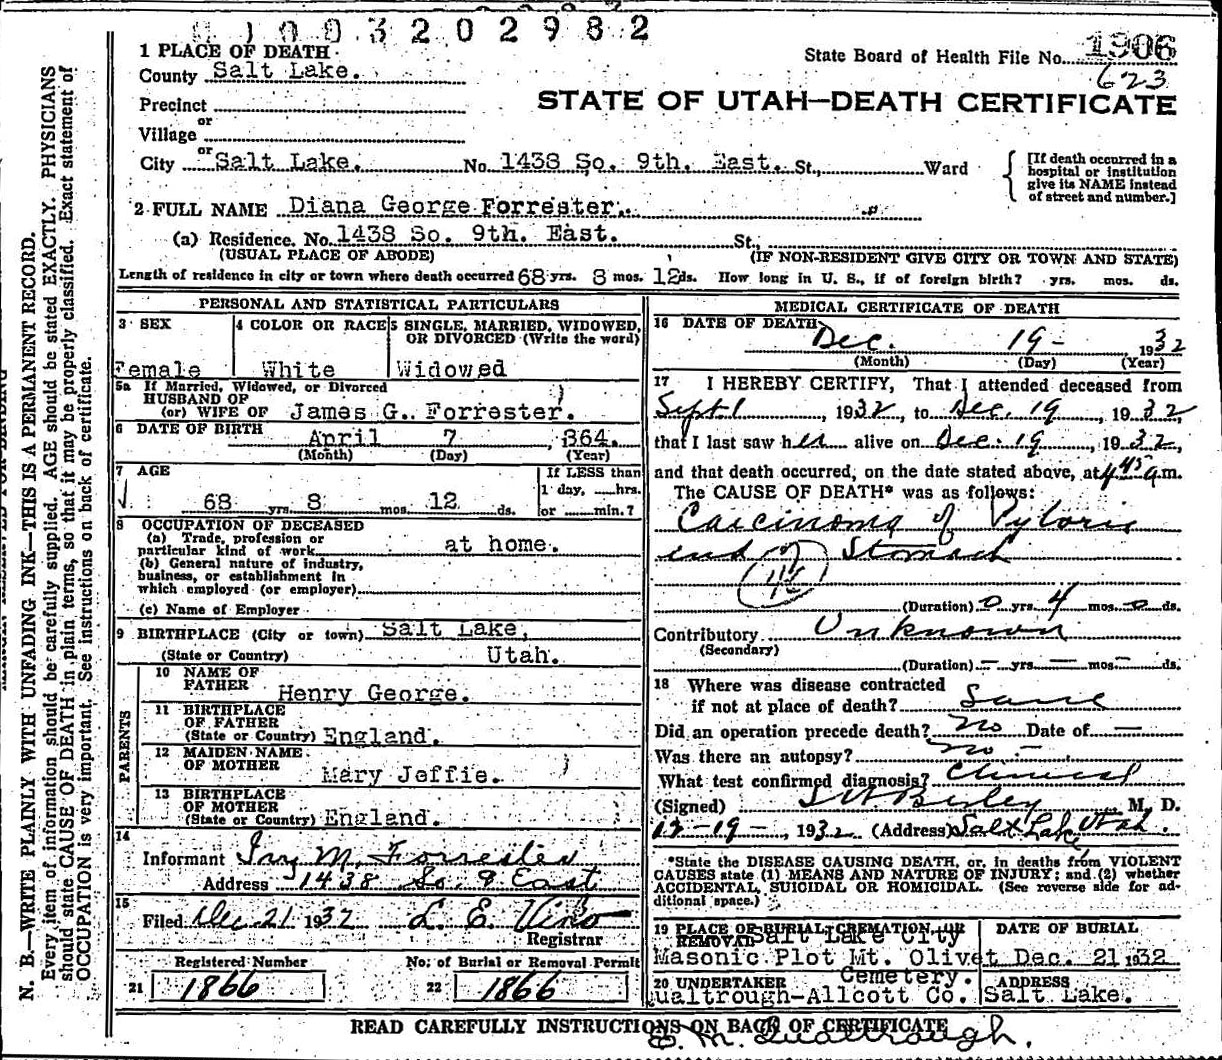 1003202982
1 PLACE OF DEATH
State Board of Health File No. 1906
County Salt Lake.
623
Precinct
STATE OF UTAH—DEATH CERTIFICATE
or
Village
or
City Salt Lake. No. 1438 So. 9th. East. St., Ward
[If death occurred in a hospital or institution give its NAME instead of street and number.]
2 FULL NAME Diana George Forrester.
(a) Residence. No. 1438 So. 9th. East. St.,
(USUAL PLACE OF ABODE) (IF NON-RESIDENT GIVE CITY OR TOWN AND STATE)
Length of residence in city or town where death occurred 68 yrs. 8 mos. 12 ds. How long in U. S., if of foreign birth? yrs. mos. ds.
PERSONAL AND STATISTICAL PARTICULARS
3 SEX
Female
4 COLOR OR RACE
White
5 SINGLE, MARRIED, WIDOWED, OR DIVORCED (Write the word)
Widowed
5a If Married, Widowed, or Divorced
HUSBAND OF
(or) WIFE OF James G. Forrester.
6 DATE OF BIRTH April 7, 1864.
(Month) (Day) (Year)
7 AGE
68 yrs. 8 mos. 12 ds.
If LESS than
1 day, hrs.
or min.?
8 OCCUPATION OF DECEASED
(a) Trade, profession or
particular kind of work at home.
(b) General nature of industry,
business, or establishment in
which employed (or employer)
(c) Name of Employer
9 BIRTHPLACE (City or town) Salt Lake,
(State or Country) Utah.
PARENTS
10 NAME OF
FATHER Henry George.
11 BIRTHPLACE
OF FATHER
(State or Country) England.
12 MAIDEN NAME
OF MOTHER Mary Jeffie.
13 BIRTHPLACE
OF MOTHER
(State or Country) England.
14
Informant M. Forrester
Address 1438 So. 9 East
15
Filed Dec 21 1932 L. E. Viko
Registrar
Registered Number
21 1866
No. of Burial or Removal Permit
22 1866
MEDICAL CERTIFICATE OF DEATH
16 DATE OF DEATH
Dec. 19 - 1932
(Month) (Day) (Year)
17 I HEREBY CERTIFY, That I attended deceased from
Sept 1, 1932, to Dec. 19, 1932
that I last saw her alive on Dec. 19, 1932,
and that death occurred, on the date stated above, at 4 45 a.m.
The CAUSE OF DEATH* was as follows:
Carcinoma of Pyloric
end of Stomach
(Duration) 0 yrs. 4 mos. 0 ds.
Contributory Unknown
(Secondary)
(Duration) — yrs. — mos. — ds.
18 Where was disease contracted
if not at place of death? Same
Did an operation precede death? no Date of —
Was there an autopsy? no -
What test confirmed diagnosis? Clinical
(Signed) M. D.
12-19-, 1932 (Address) Salt Lake, Utah.
*State the DISEASE CAUSING DEATH, or, in deaths from VIOLENT
CAUSES state (1) MEANS AND NATURE OF INJURY; and (2) whether
ACCIDENTAL, SUICIDAL OR HOMICIDAL. (See reverse side for ad-
ditional space.)
19 PLACE OF BURIAL, CREMATION, OR
REMOVAL Salt Lake City
Masonic Plot Mt. Olivet
Cemetery.
DATE OF BURIAL
Dec. 21 1932
20 UNDERTAKER
ualtrough-Allcott Co.
ADDRESS
Salt Lake.
READ CAREFULLY INSTRUCTIONS ON BACK OF CERTIFICATE
E. M. Qualtrough.
N. B.—WRITE PLAINLY WITH UNFADING INK—THIS IS A PERMANENT RECORD.
Every item of information should be carefully supplied. AGE should be stated EXACTLY. PHYSICIANS
should state CAUSE OF DEATH in plain terms, so that it may be properly classified. Exact statement of
OCCUPATION is very important. See instructions on back of certificate.